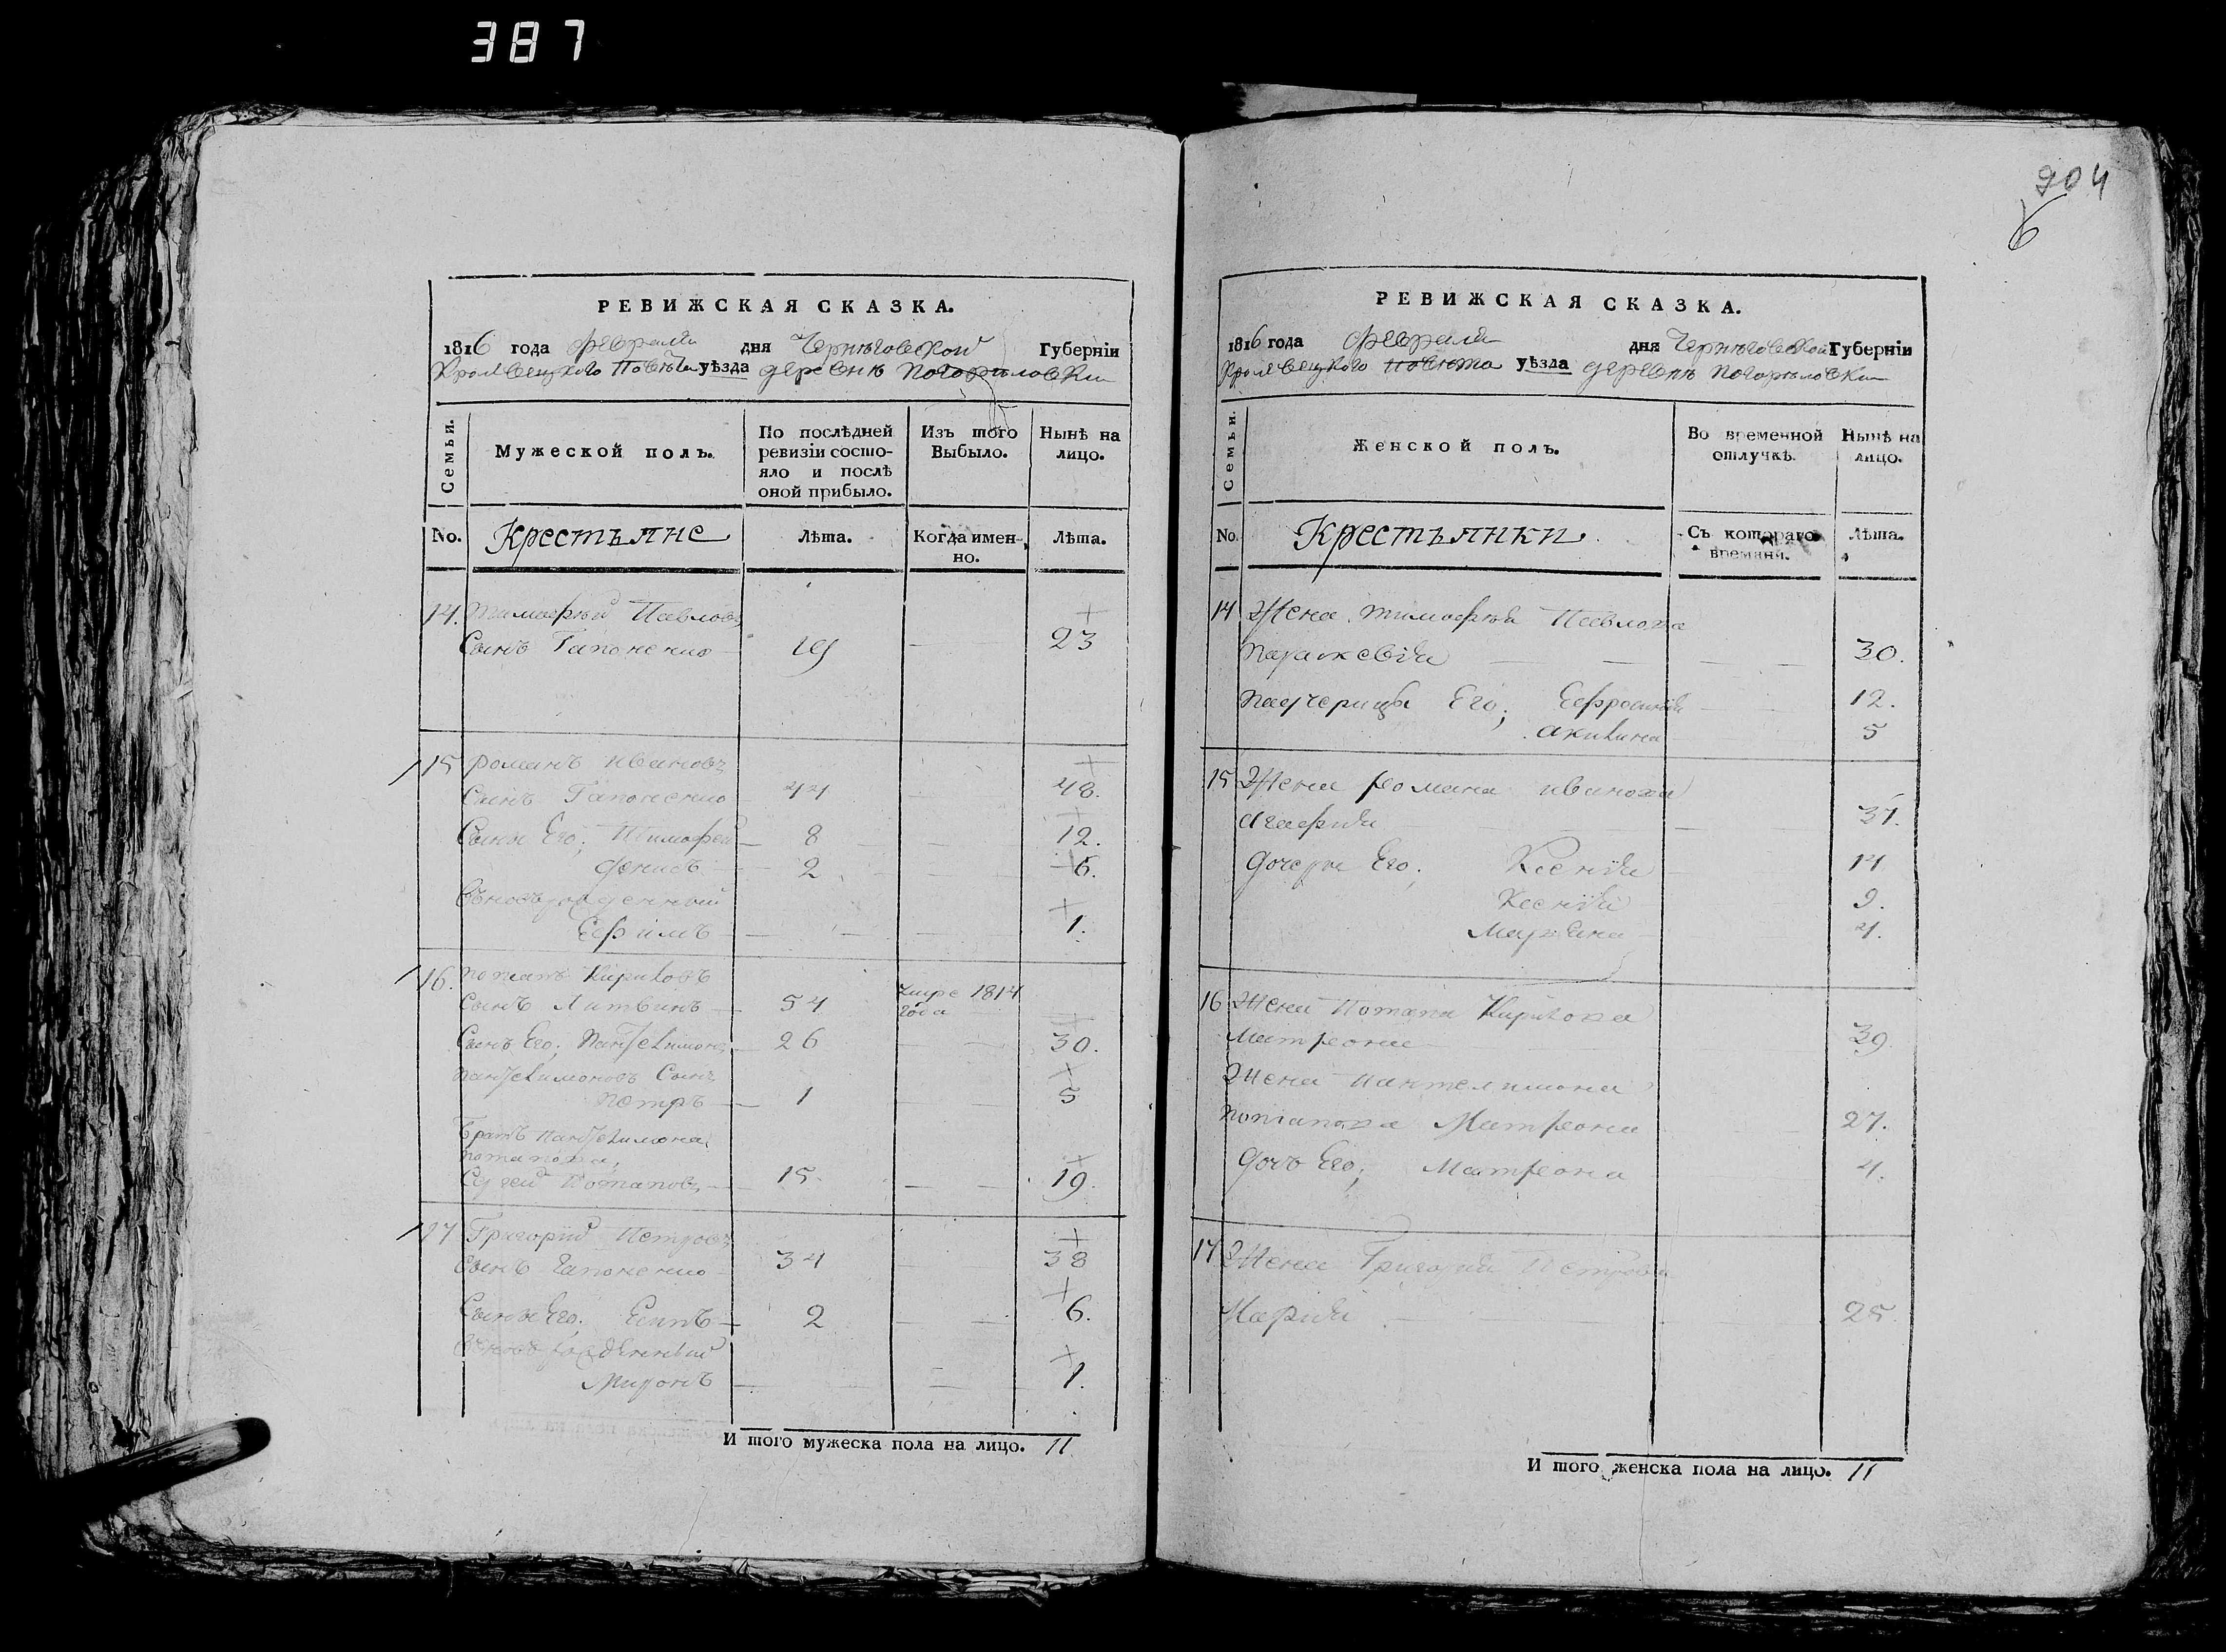 387
РЕВИЖСКАЯ СКАЗКА.
1816 года февраля дня Черниговской Губерніи
Кролевецкого Повѣта уѣзда деревнѣ Погорѣловки
Семьи.
Мужеской полъ.
По послѣдней ревизіи состояло и послѣ оной прибыло.
Изъ того Выбыло.
Нынѣ на лицо.
No. Крестьяне Лѣта. Когда именно. Лѣта.
14. Тимофѣй Павловъ
Сынъ Гапоненко 19 23
15 Романъ Ивановъ
Сынъ Гапоненко 44 48.
Сыны Его; Тимофей 8 12.
Денисъ 2 6.
Вьновърожденный
Ефимъ 1.
16. Потапъ Кириловъ
Сынъ Литвинъ 54 умре 1814 года
Сынъ Его; Пантелимонъ 26 30.
Пантелимоновъ Сынъ
Петръ 1 5
Братъ Пантелимона
Потапова,
Сергей Потаповъ 15. 19.
17 Григорий Петровъ
Сынъ Гапоненко 34 38
Сыны Его; Есипъ 2 6.
Вьновърожденный
Миронъ 1.
И того мужеска пола на лицо. 11
904
6
РЕВИЖСКАЯ СКАЗКА.
1816 года февраля дня Черниговской Губерніи
Кролевецкого Повѣта уѣзда деревнѣ Погорѣловки
Семьи.
Женской полъ.
Во временной отлучкѣ.
Нынѣ на лицо.
No. Крестьянки Съ котораго времяни. Лѣта.
14 Жена Тимофѣя Павлова
Параскевія 30.
Падчерицы Его; Ефросинія 12.
Акилина 5
15 Жена Романа Иванова
Агафия 37.
Дочери Его; Ксенія 14
Ксенія 9.
Марѳина 4.
16 Жена Потапа Кирилова
Матреона 39.
Жена Пантелимона
Потапова Матреона 27.
Дочъ Его; Матреона 4.
17 Жена Григорія Петрова
Марія 25.
И того женска пола на лицо. 11